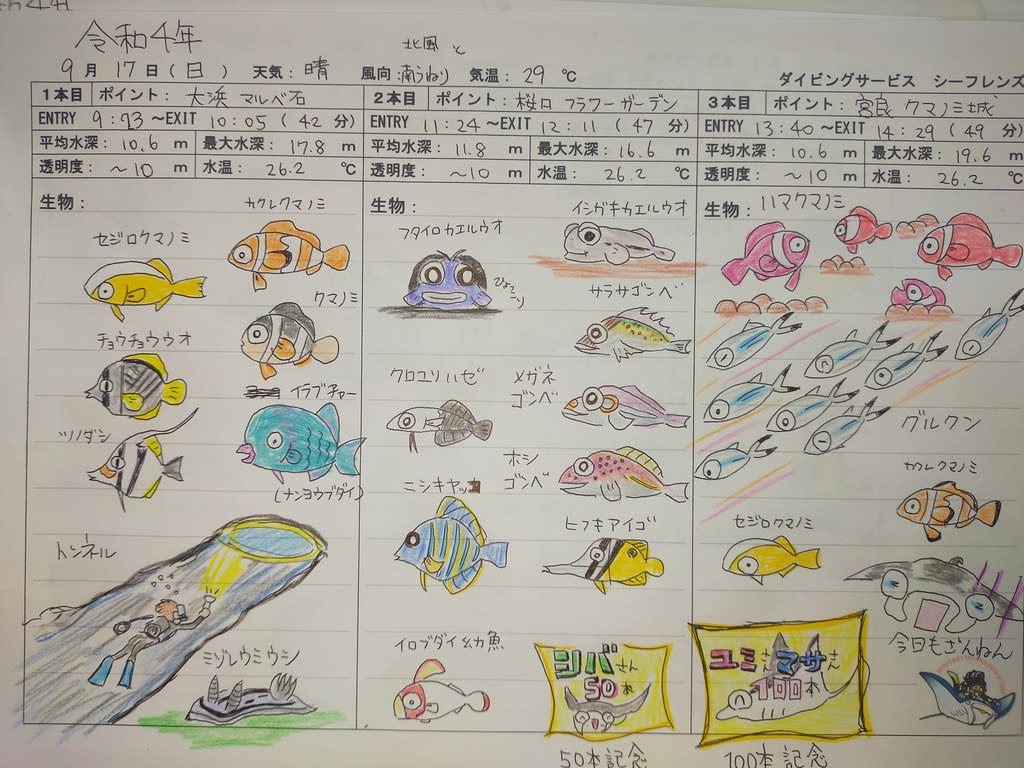 令和4年
北風と
9月17日(日) 天気:晴 風向:南うねり 気温:29℃
ダイビングサービス シーフレンズ
1本目 ポイント:大浜 マルベ石
ENTRY 9:23~EXIT 10:05(42分)
平均水深:10.6m 最大水深:17.8m
透明度:~10m 水温:26.2℃
生物:
カクレクマノミ
セジロクマノミ
クマノミ
チョウチョウウオ
イラブチャー
ツノダシ
(ナンヨウブダイ)
トンネル
ミゾレウミウシ
2本目 ポイント:桜口 フラワーガーデン
ENTRY 11:24~EXIT 12:11(47分)
平均水深:11.8m 最大水深:16.6m
透明度:~10m 水温:26.2℃
生物:
イシガキカエルウオ
フタイロカエルウオ
ひょっこり
サラサゴンベ
クロユリハゼ
メガネ
ゴンベ
ホシ
ゴンベ
ニシキヤッコ
ヒフキアイゴ
イロブダイ幼魚
シバさん
50本
50本記念
3本目 ポイント:宮良 クマノミ城
ENTRY 13:40~EXIT 14:29(49分)
平均水深:10.6m 最大水深:19.6m
透明度:~10m 水温:26.2℃
生物:
ハマクマノミ
グルクン
カクレクマノミ
セジロクマノミ
今日もざんねん
ユミさん マサさん
100本
100本記念